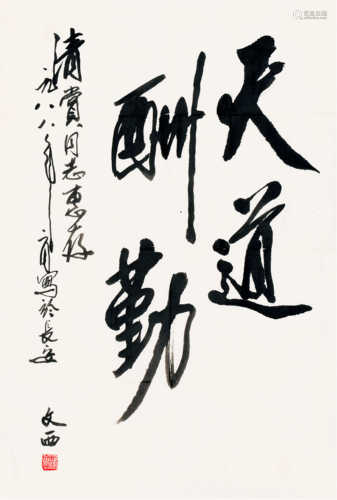 天道
酬勤
清赏同志惠存
一九八八年一月写於長安
文西